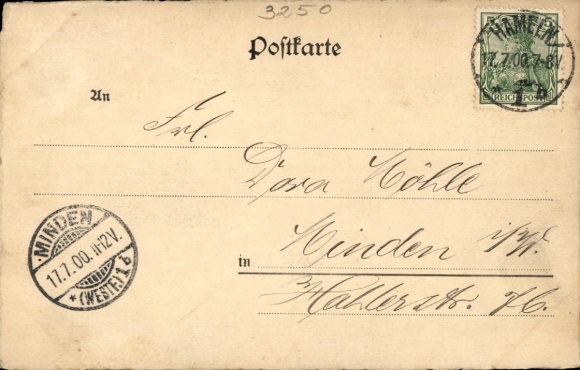 3250
Postkarte
HAMELN
17.7.00.7-8V.
* 1 b
REICHSPOST
An
Frl.
Dora Höhle
Minden i/W.
in
Hahlerstr. 76.
MINDEN
17.7.00.11-12V.
*(WESTF.)1b